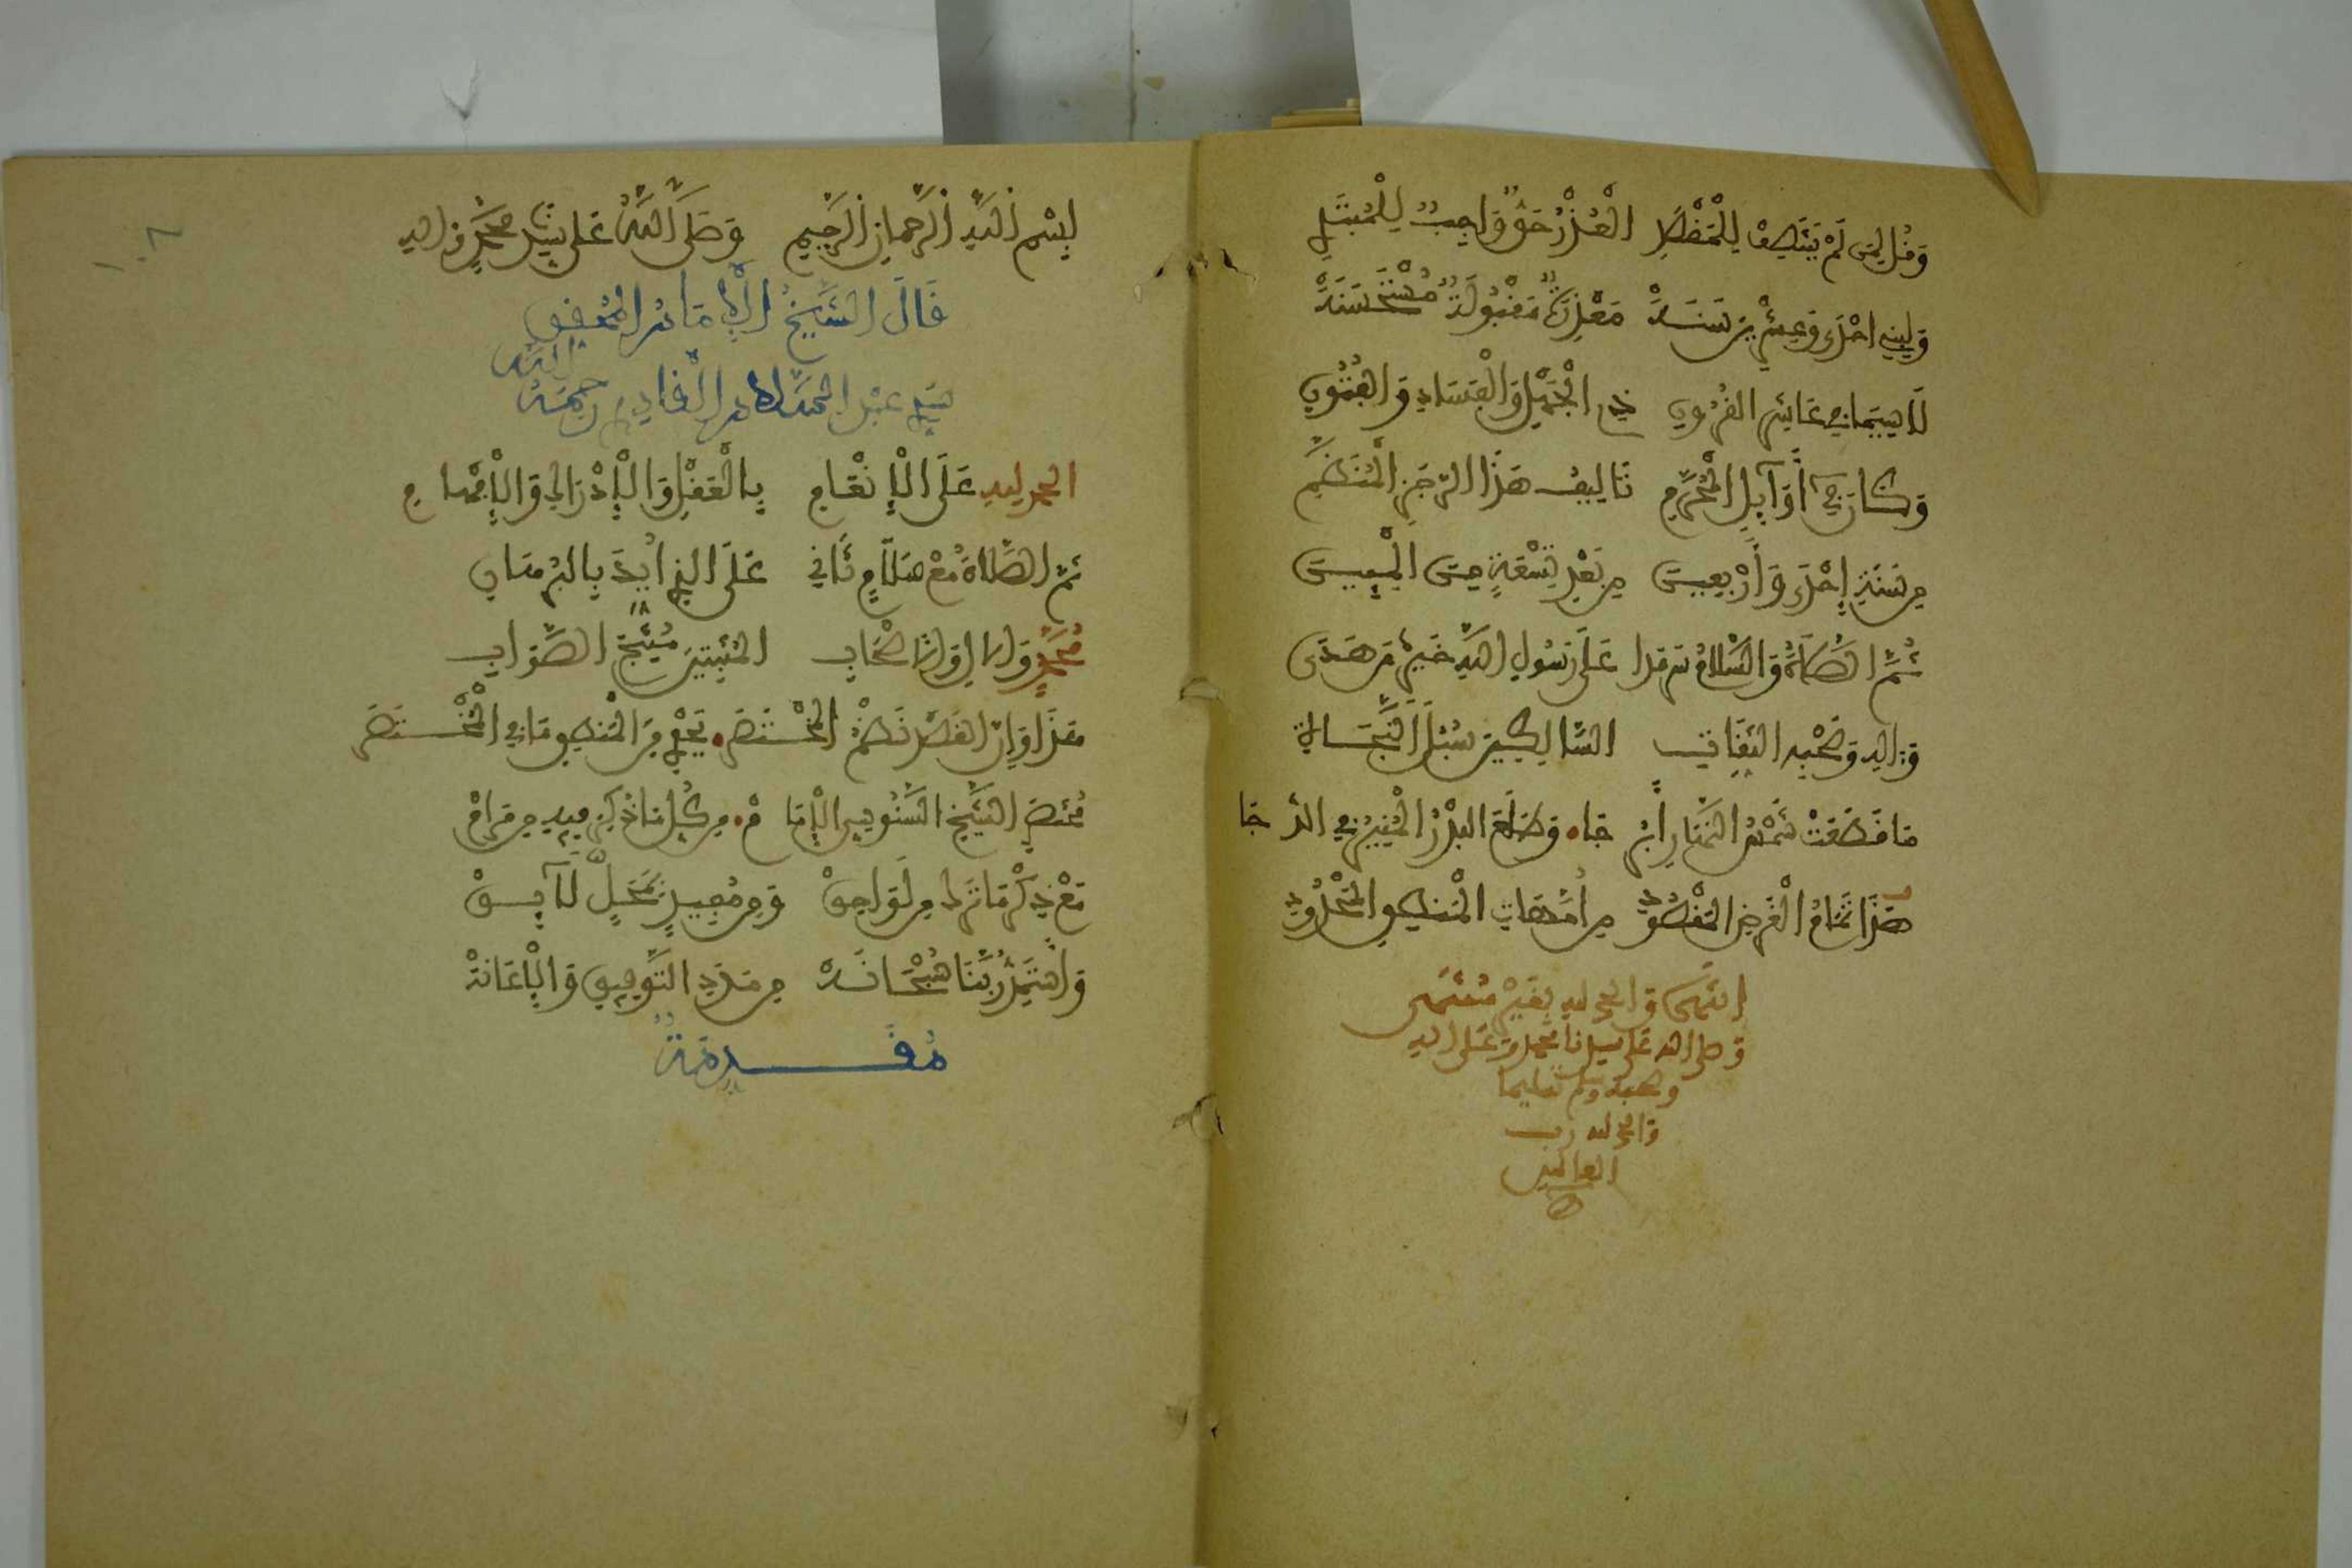 وَقُل لِّمَن لَمْ يَنْتَصِفْ لِلْمَقْصَدِ الْعُذْرُ حَقٌّ وَاجِبٌ لِلْمُبْتَدِي
وَلِبَنِي اِحْدَى وَعِشْرِينَ سَنَهْ مَعْذِرَةٌ مَقْبُولَةٌ مُسْتَحْسَنَهْ
لَا سِيَمَا فِي عَاشِرِ الْقُرُونِ ذِي الْجَهْلِ وَالْفَسَادِ وَالْفُتُونِ
وَكَانَ فِي أَوَائِلِ الْمُحَرَّمِ تَالِيفُ هَذَا الرَّجَزِ الْمُنَظَّمِ
مِن سَنَةِ إِحْدَى وَأَرْبَعِينَ مِن بَعْدِ تِسْعَةٍ مِنَ الْمِئِينَ
ثُمَّ الصَّلَاةُ وَالسَّلَامُ سَرْمَدَا عَلَى رَسُولِ اللهِ خَيْرِ مَن هَدَى
وَءَالِهِ وَصَحْبِهِ الثِّقَاتِ السَّالِكِينَ سُبُلَ النَّجَاةِ
مَا قَطَعَتْ شَمْسُ النَّهَارِ أَبْرُجَا وَطَلَعَ الْبَدْرُ الْمُنِيرُ فِي الدُّجَا
هَذَا تَمَامُ الْغَرَضِ الْمَقْصُودِ مِن أُمَّهَاتِ الْمَنْطِقِ الْمَحْدُودِ
انتهى والحمد لله بغير منتهى
وصلى الله على سيدنا محمد وعلى اله
وصحبه وسلم تسليما
والحمد لله رب
العالمين
١٠٨
بِسْمِ اللَّهِ الرَّحْمَانِ الرَّحِيمِ وَصَلَّى اللَّهُ عَلَى سَيِّدِنَا مُحَمَّدٍ وَءَالِهِ
قَالَ الشَّيْخُ الْإِمَامُ الْمُحَقِّقُ
سَيِّدِي عَبْدُ السَّلَامِ الْقَادِرِي رَحِمَهُ اللَّهُ
الحمد لله عَلَى الْإِنْعَامِ بِالْعَقْلِ وَالْإِدْرَاكِ وَالْإِفْهَامِ
ثُمَّ الصَّلَاةُ مَعْ سَلَامٍ ثَانِي عَلَى الَّذِي أُيِّدَ بِالْبُرْهَانِ
مُحَمَّدٍ وَالْآلِ وَالْأَصْحَابِ الْمُثْبِتِينَ مُنْتَجَ الصَّوَابِ
هَذَا وَإِنَّ الْقَصْدَ نَظْمُ الْمُخْتَصَرْ يَحْوِي مِنَ الْمَنْطِقِ مَا فِي الْمُخْتَصَرْ
مُخْتَصَرِ الشَّيْخِ السَّنُوسِيِّ الْإِمَامْ مِن كُلِّ مَا ذُكِرَ فِيهِ مِن مَرَامْ
مَعْ ذِكْرِ مَا تَرَكَ مِن لَوَاحِقْ وَمِن مُفِيدٍ بِمَحَلٍّ لَائِقْ
وَأَسْتَمِدُّ رَبَّنَا سُبْحَانَهْ مِن مَدَدِ التَّوْفِيقِ وَالْإِعَانَهْ
مُقَدِّمَةٌ